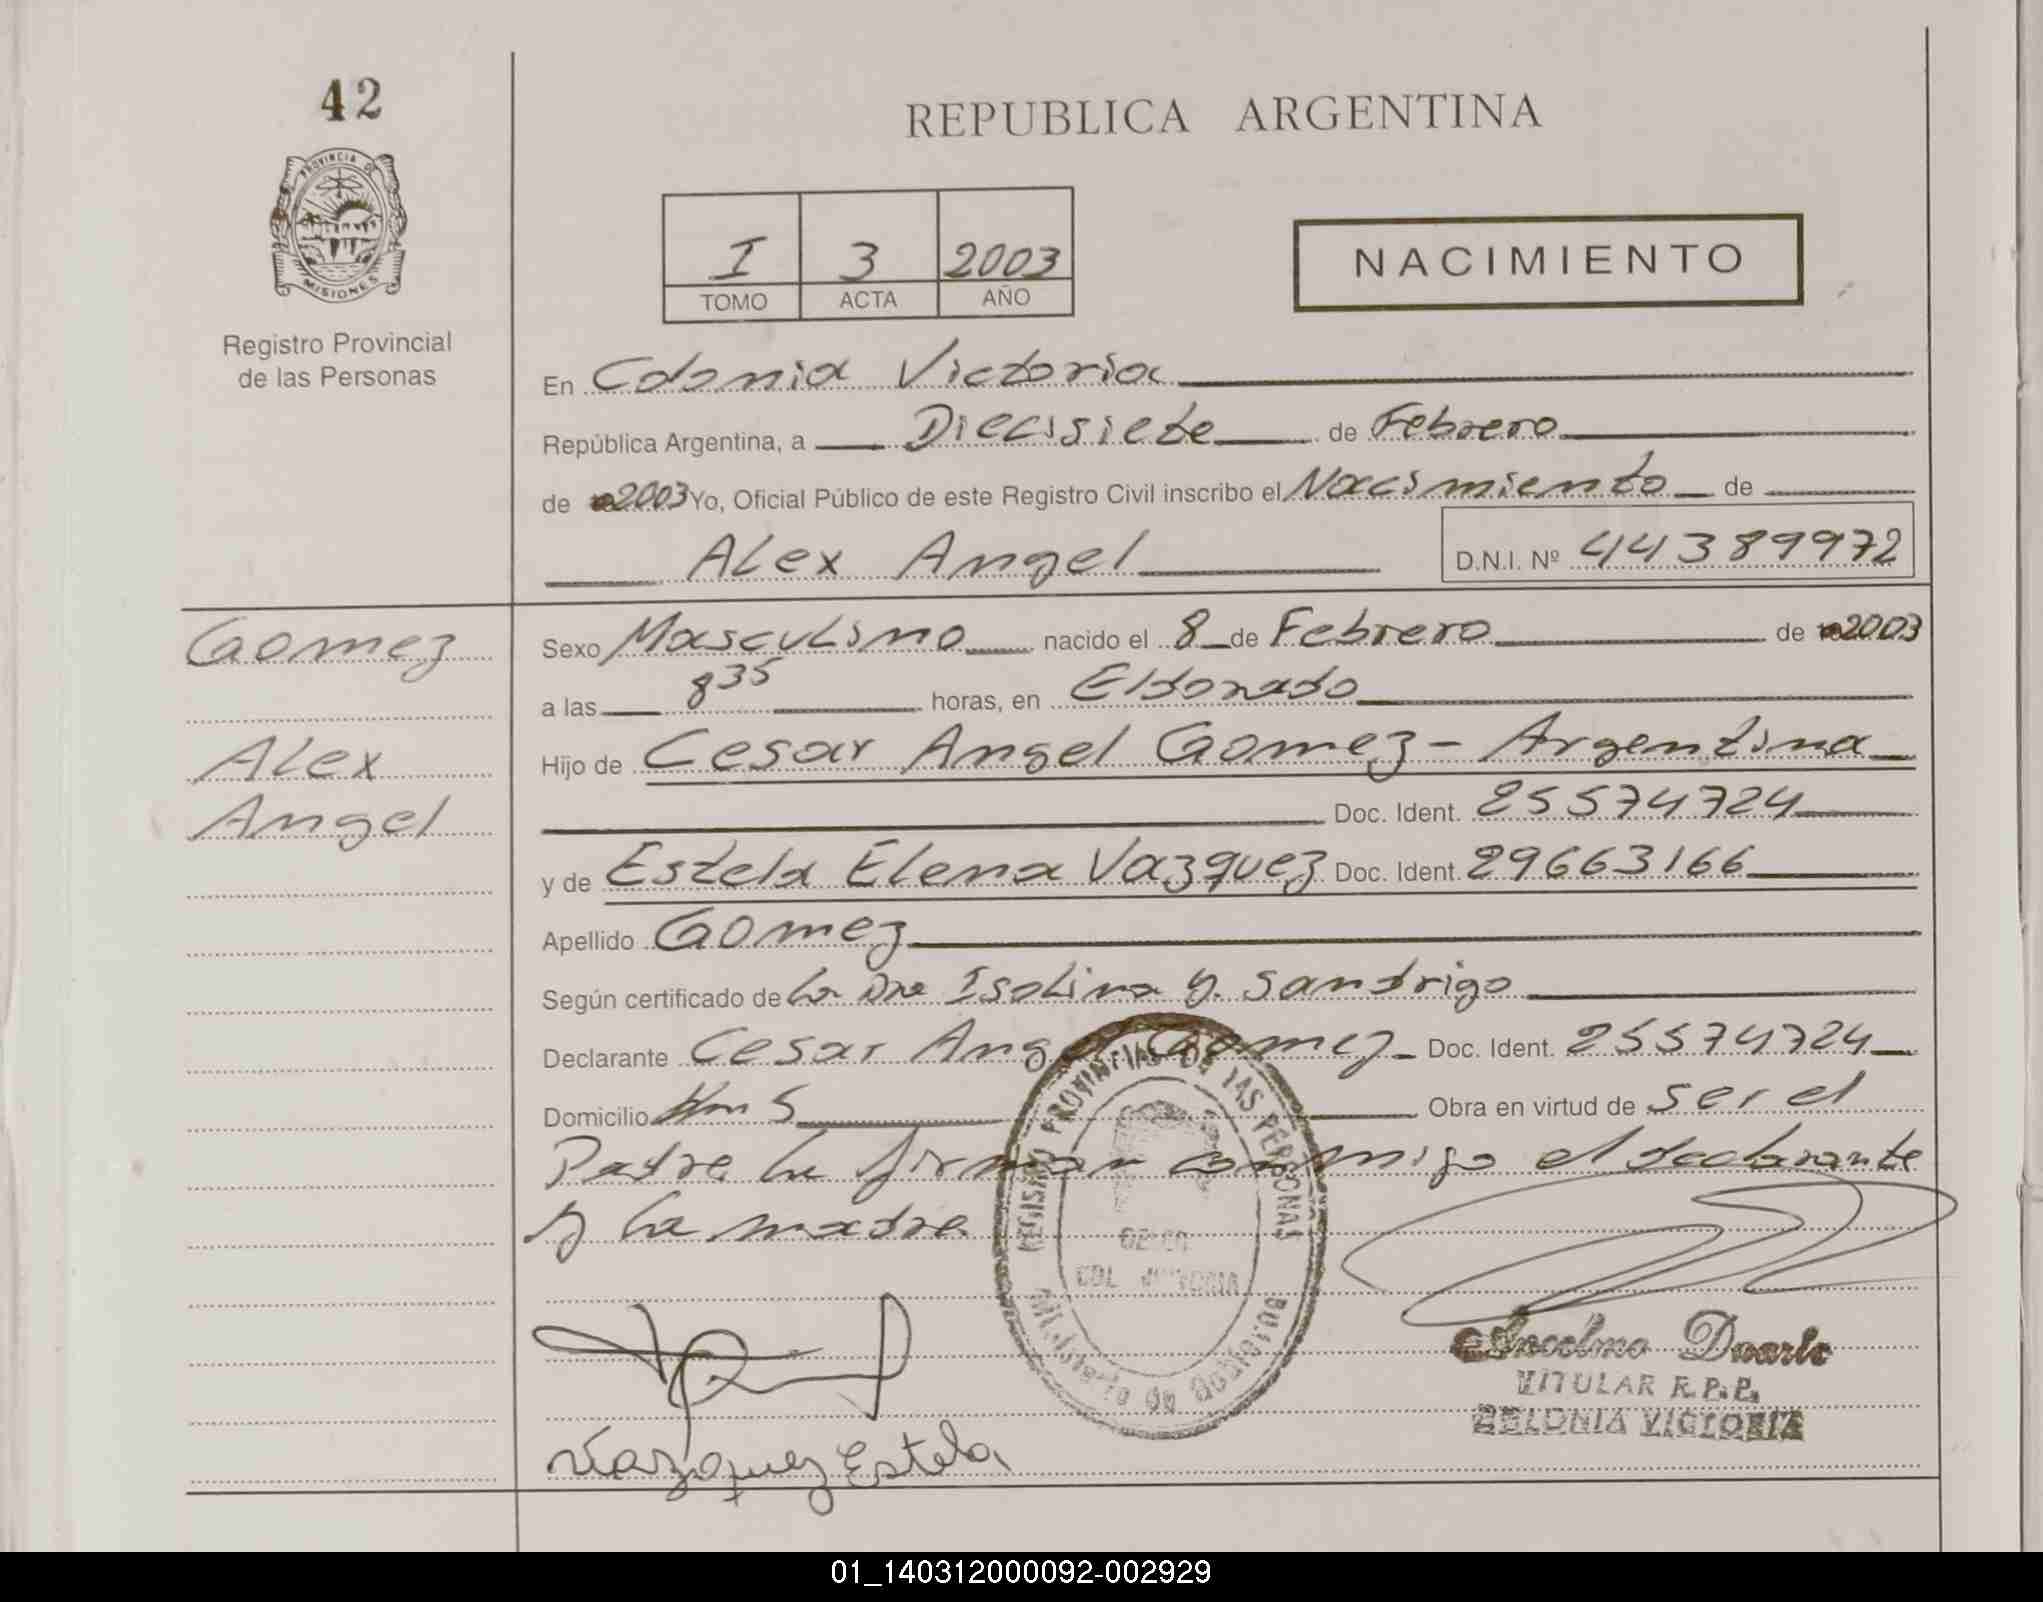 42
REPUBLICA ARGENTINA
PROVINCIA DE
MISIONES
Registro Provincial
de las Personas
I 3 2003
TOMO ACTA AÑO
NACIMIENTO
En Colonia Victoria
República Argentina, a Diecisiete de Febrero
de 2003 Yo, Oficial Público de este Registro Civil inscribo el Nacimiento de
Alex Angel D.N.I. Nº 44389972
Gomez
Alex
Angel
Sexo Masculino nacido el 8 de Febrero de 2003
a las 8 35 horas, en Eldorado
Hijo de Cesar Angel Gomez - Argentina
Doc. Ident. 25574724
y de Estela Elena Vazquez Doc. Ident. 29663166
Apellido Gomez
Según certificado de la Dra Isolina Y. Sandrigo
Declarante Cesar Angel Gomez Doc. Ident. 25574724
Domicilio Km 5 Obra en virtud de ser el
Padre la firman conmigo el declarante
y la madre
REGISTRO PROVINCIAL DE LAS PERSONAS
COL. VICTORIA
Ministerio de Gobierno
Ancelmo Duarte
TITULAR R.P.P.
COLONIA VICTORIA
Vazquez Estela
01_140312000092-002929